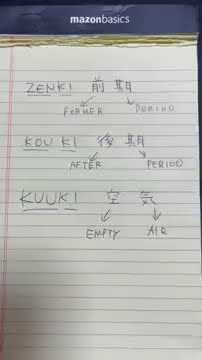 mazonbasics
ZENKI 前期
FORMER PERIOD
KOUKI 後期
AFTER PERIOD
KUUKI 空気
EMPTY AIR